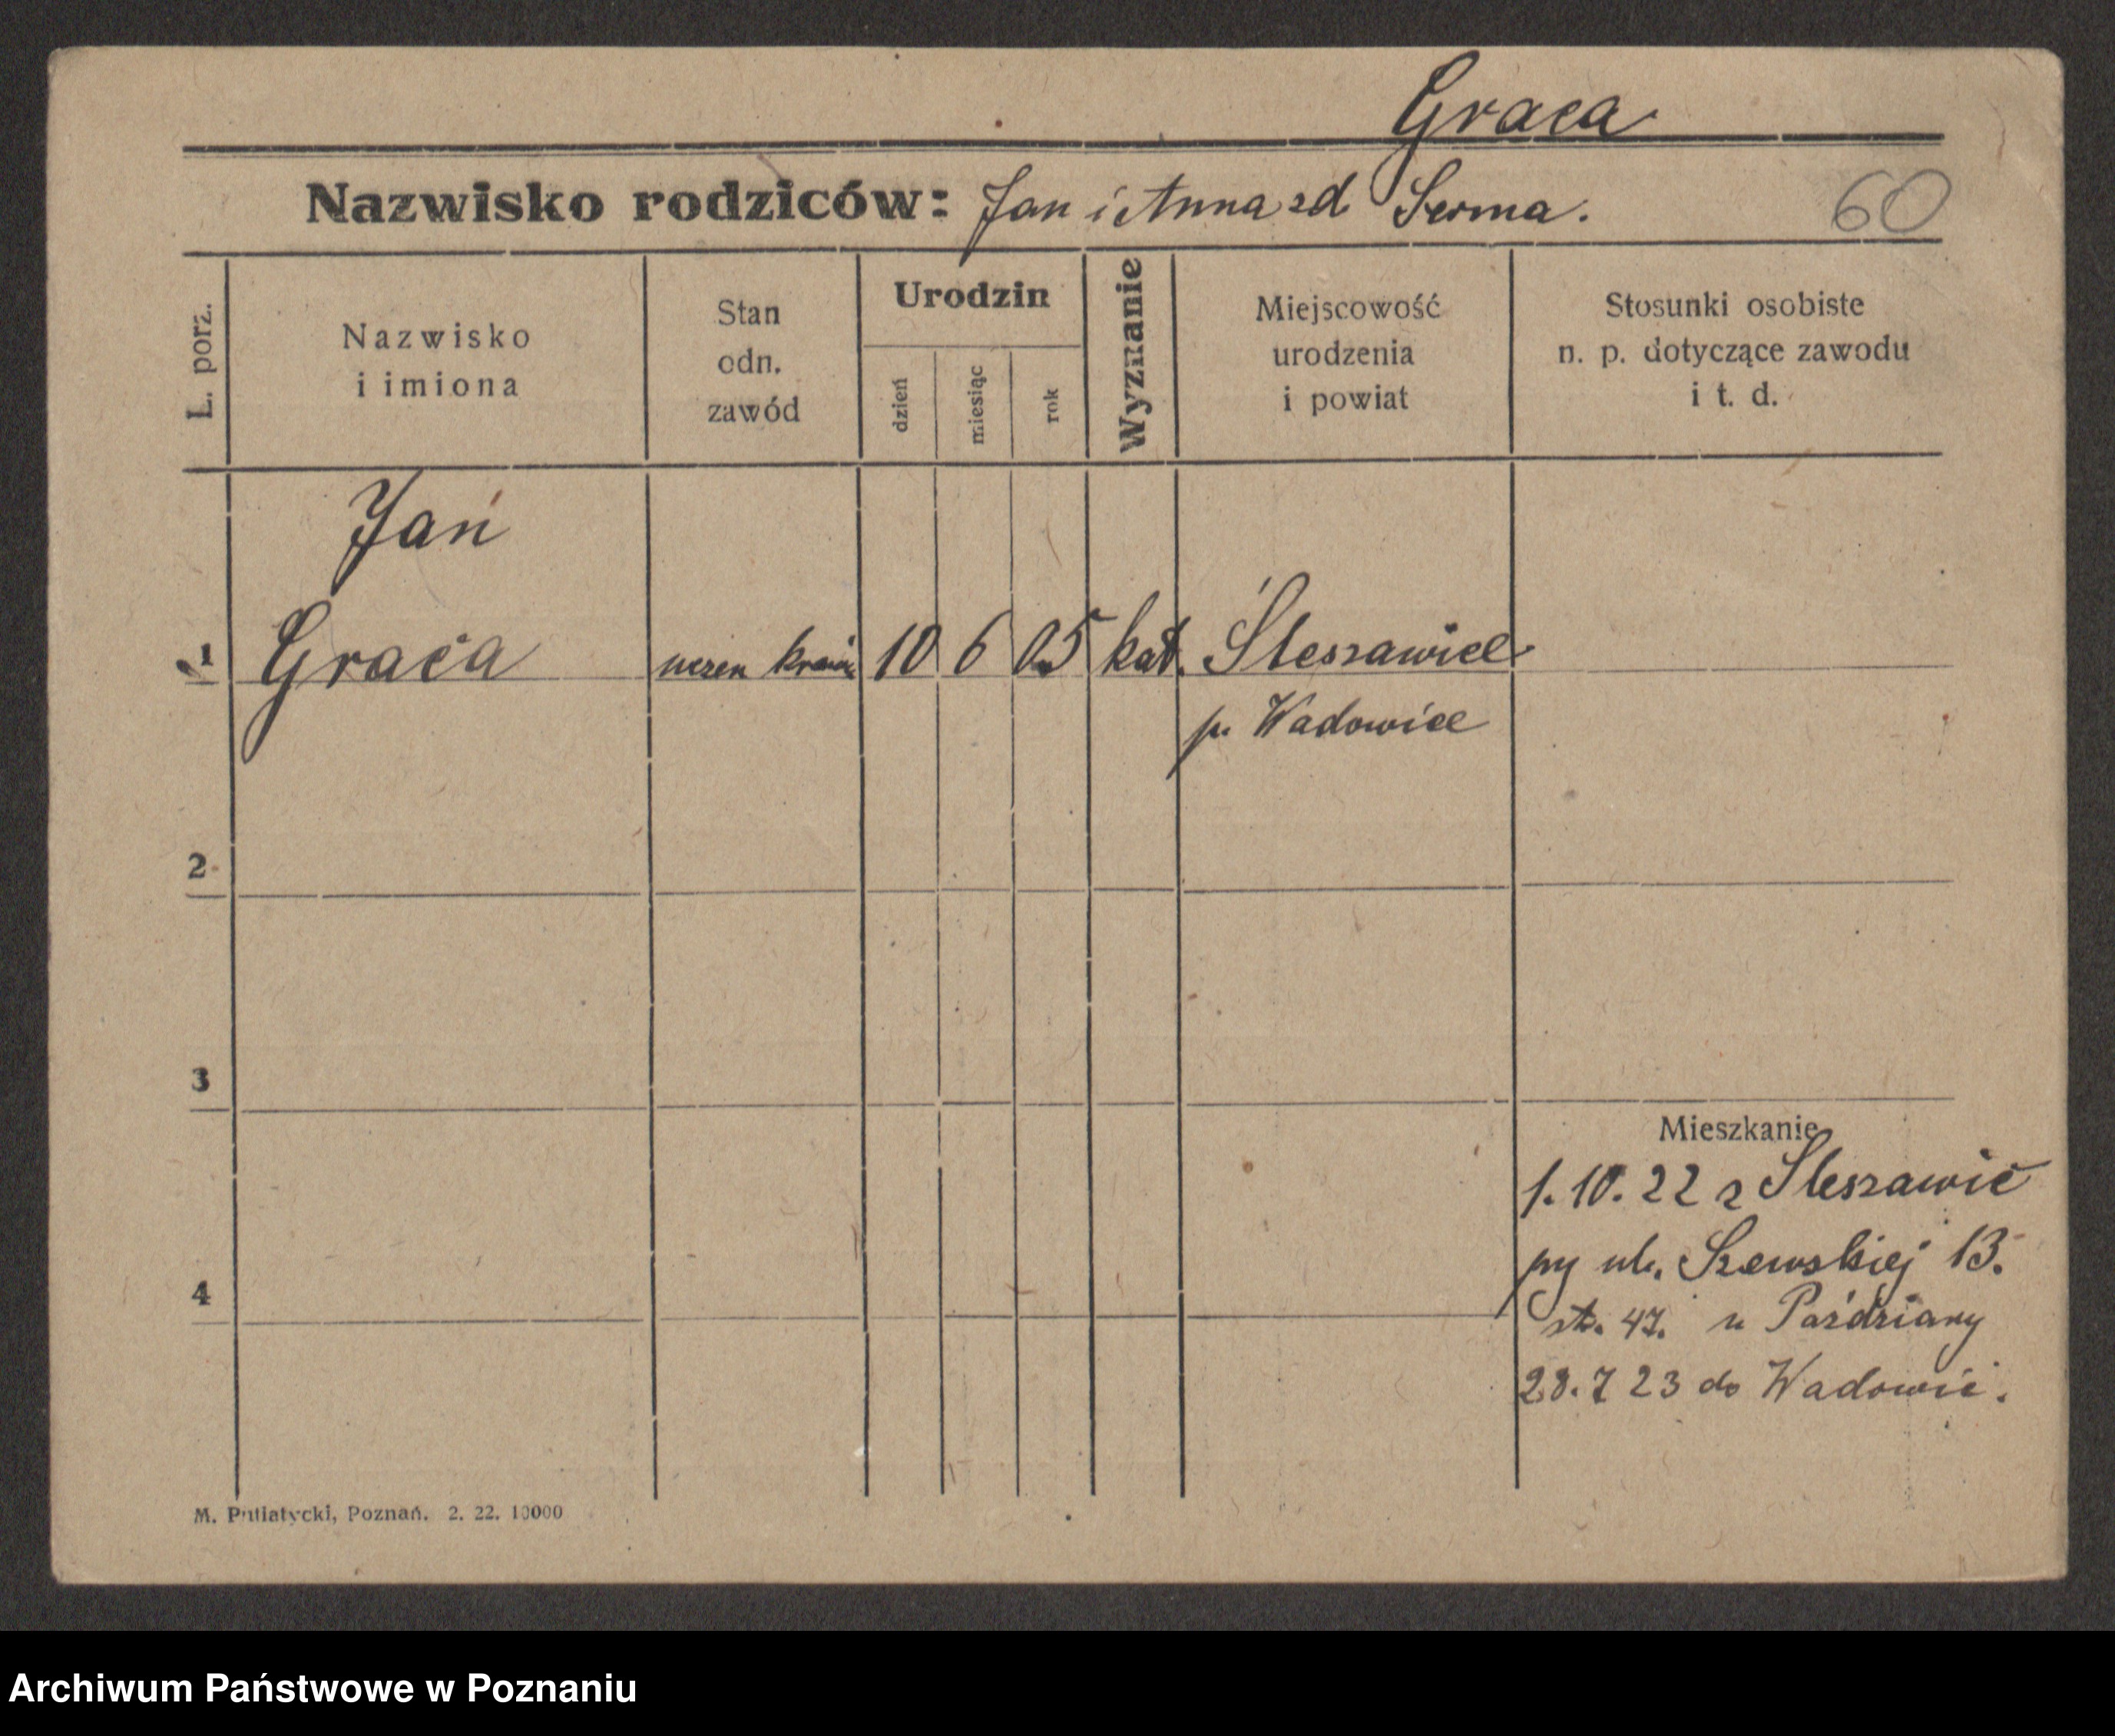 Graca
Nazwisko rodziców: Jan i Anna zd Serma.
60
L. porz.
Nazwisko
i imiona
Stan
odn.
zawód
Urodzin
dzień
miesiąc
rok
Wyznanie
Miejscowość
urodzenia
i powiat
Stosunki osobiste
n. p. dotyczące zawodu
i t. d.
Jan
1 Graca uczen 10 6 05 kat. Śleszawice
p. Wadowice
2
3
Mieszkanie
1. 10. 22 z Sleszawic
py ul. Szewskiej 13.
4
st. 47. u Paździany
28. 7 23 do Wadowic.
M. Putiatycki, Poznań. 2. 22. 10000
Archiwum Państwowe w Poznaniu